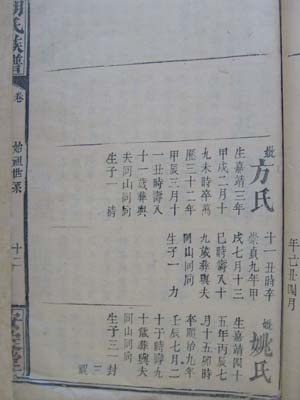 年己丑四月
妣方氏
生嘉靖三年
甲戌二月十
九未時卒萬
歷三十二年
甲辰三月十
一丑時壽八
十一歲葬與
夫同山同向
生子一
十一丑時卒
崇禎九年甲
戌七月十三
巳時壽八十
九歲葬與夫
同山同向
生子一 力
妣姚氏
生嘉靖四十
五年丙辰七
月十五卯時
卒順治九年
壬辰七月二
十子時壽九
十歲葬與夫
同山同向
生子三 一封
氏族譜
卷
始祖世系
十二